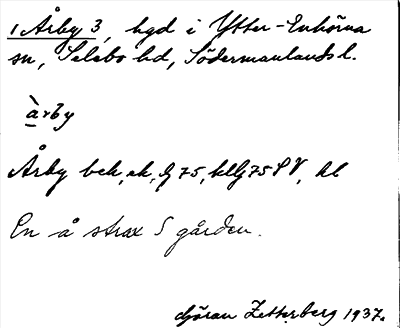 1 Årby 3, hgd i Ytter-Enhörna
sn, Selebo hd, Södermanlands l.
àrby
Årby bek, ek, Gj 75, hllGj 75 SV, hl
En å strax S gården.
Göran Zetterberg 1937.